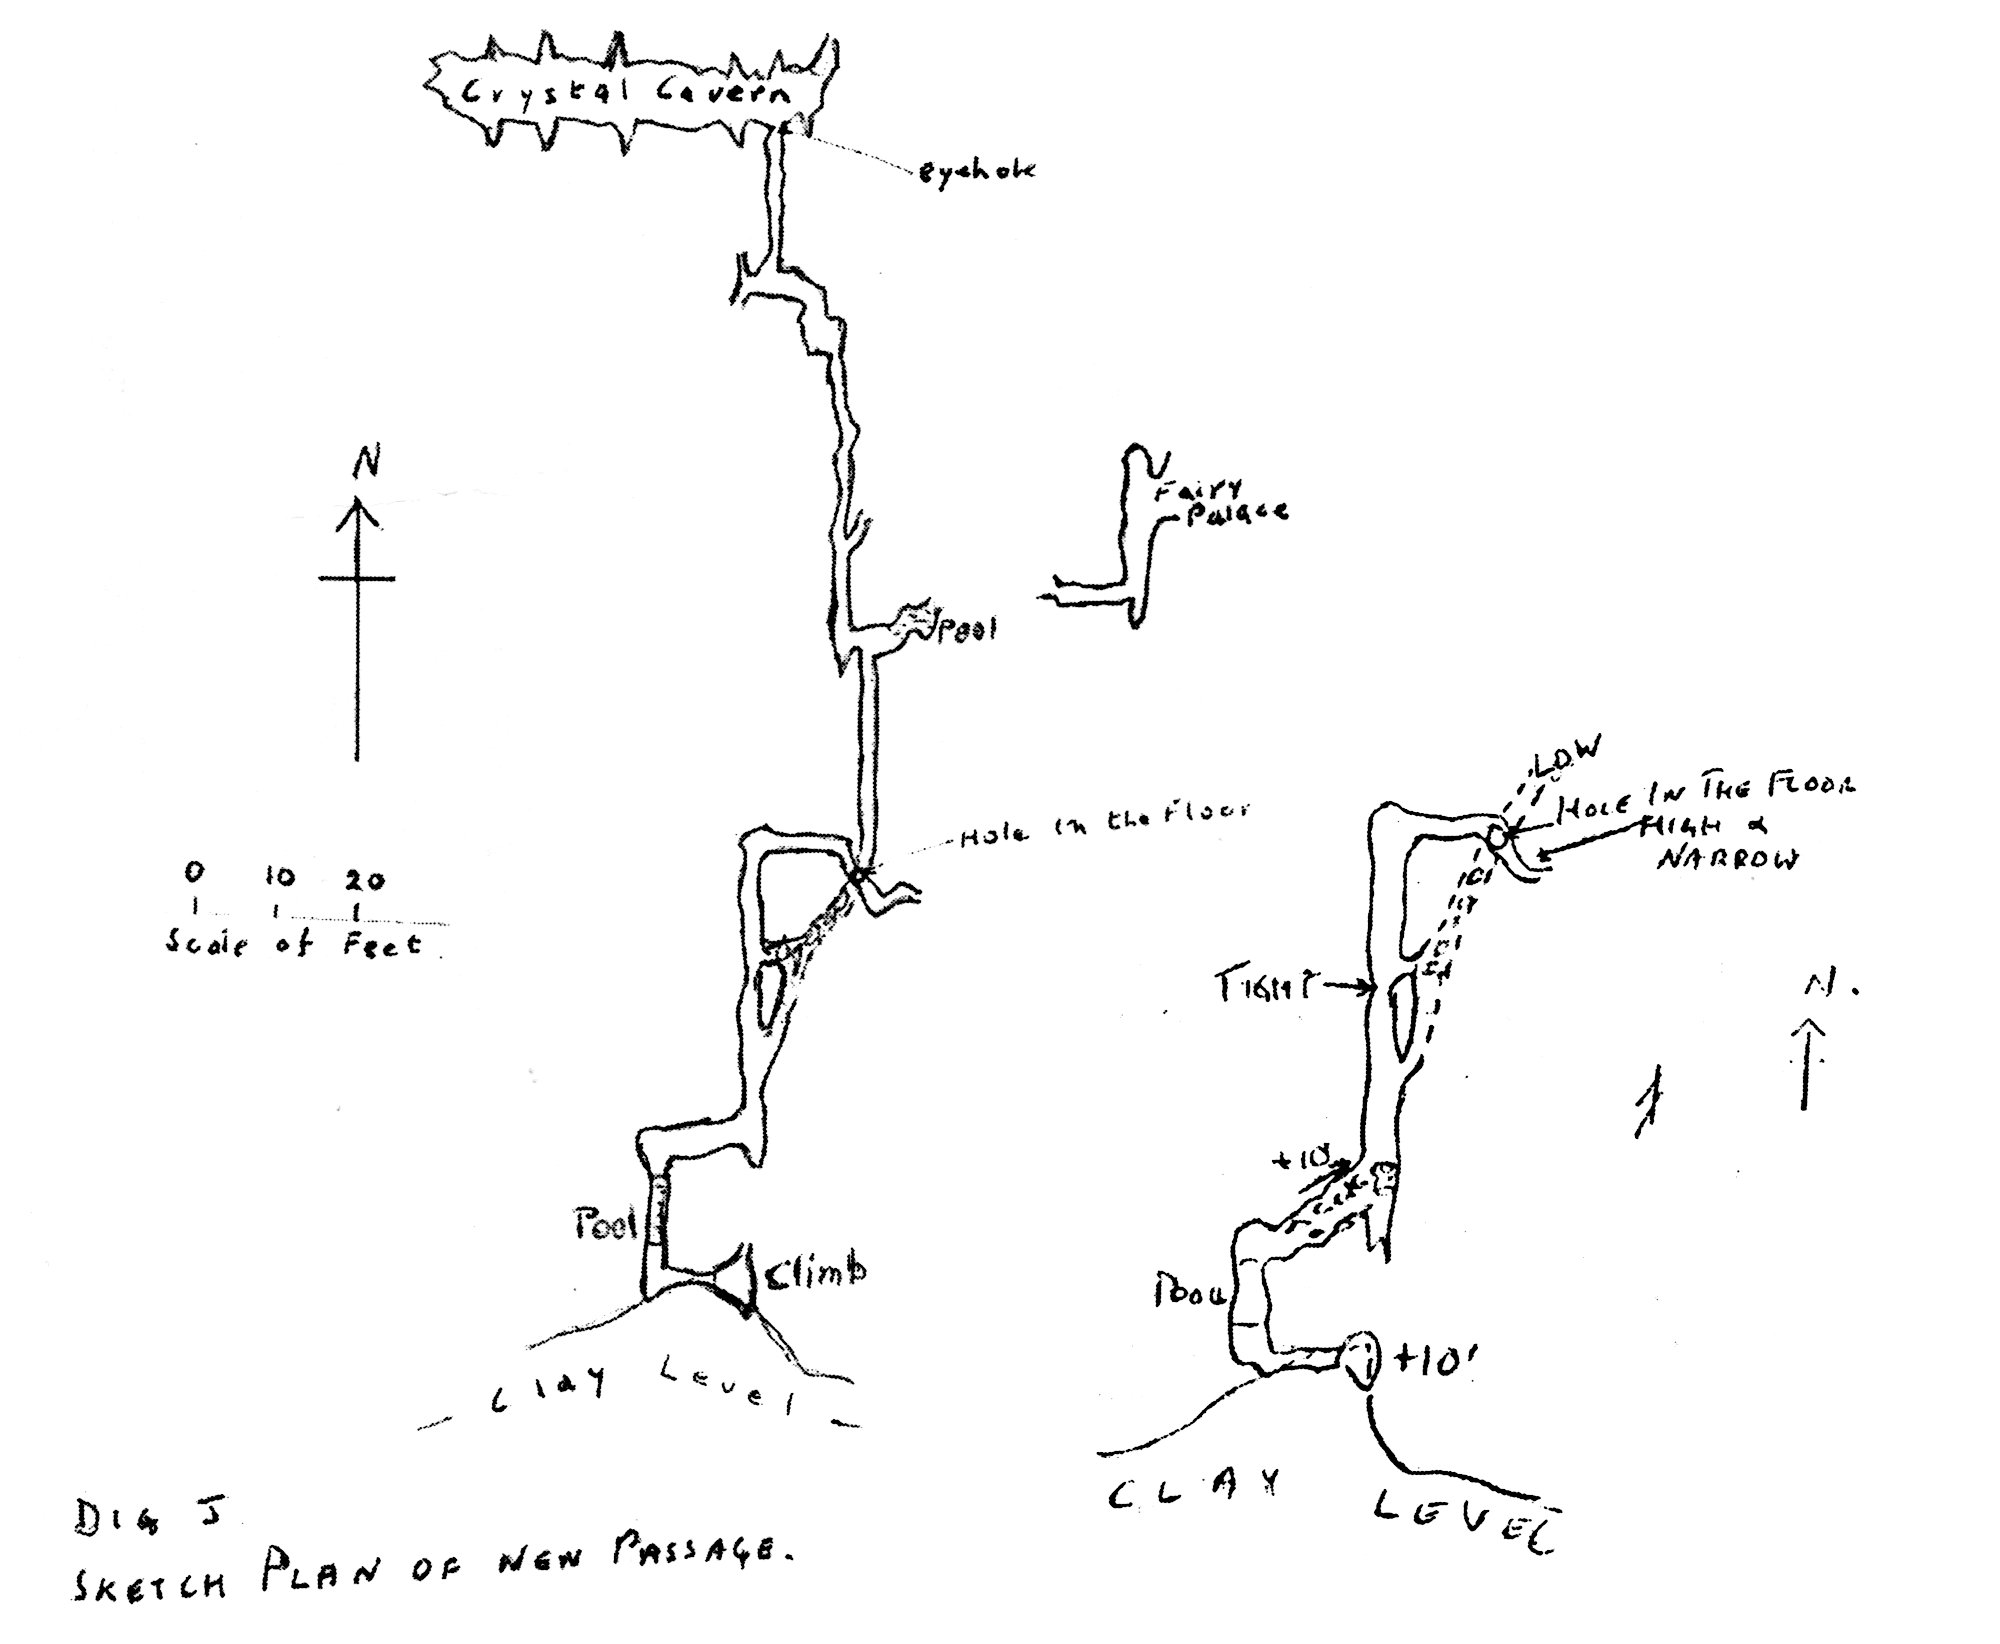 Crystal Cavern
eyehole
N
Fairy
Palace
Pool
LOW
HOLE IN THE FLOOR
HIGH &
NARROW
Hole in the Floor
0 10 20
Scale of Feet
TIGHT
N.
+10'
Pool
Climb
Pool
+10'
Clay Level
CLAY LEVEL
DIG J
SKETCH PLAN OF NEW PASSAGE.